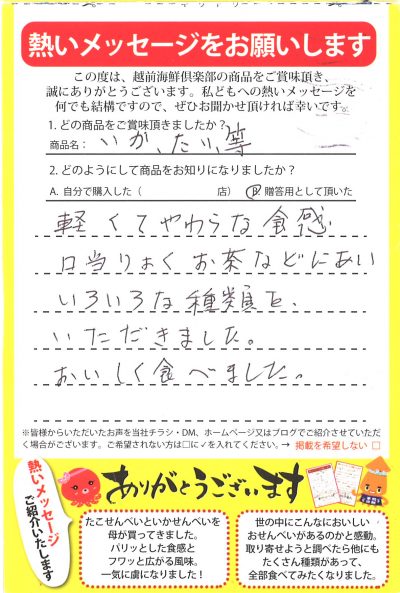 熱いメッセージをお願いします
この度は、越前海鮮倶楽部の商品をご賞味頂き、
誠にありがとうございます。私どもへの熱いメッセージを
何でも結構ですので、ぜひお聞かせ頂ければ幸いです。
1. どの商品をご賞味頂きましたか?
商品名: いか、たい、等
2. どのようにして商品をお知りになりましたか?
A. 自分で購入した( 店) B. 贈答用として頂いた
軽くてやわらな食感
口当りよく お茶などにあい
いろいろな種類を、
いただきました。
おいしく食べました。
※皆様からいただいたお声を当社チラシ・DM、ホームページ又はブログでご紹介させていただ
く場合がございます。ご希望されない方は□に✓を入れてください。→ 掲載を希望しない □
熱いメッセージ
ご紹介いたします
ありがとうございます
たこせんべいといかせんべいを
母が買ってきました。
パリッとした食感と
フワッと広がる風味。
一気に虜になりました!
世の中にこんなにおいしい
おせんべいがあるのかと感動。
取り寄せようと調べたら他にも
たくさん種類があって、
全部食べてみたくなりました。